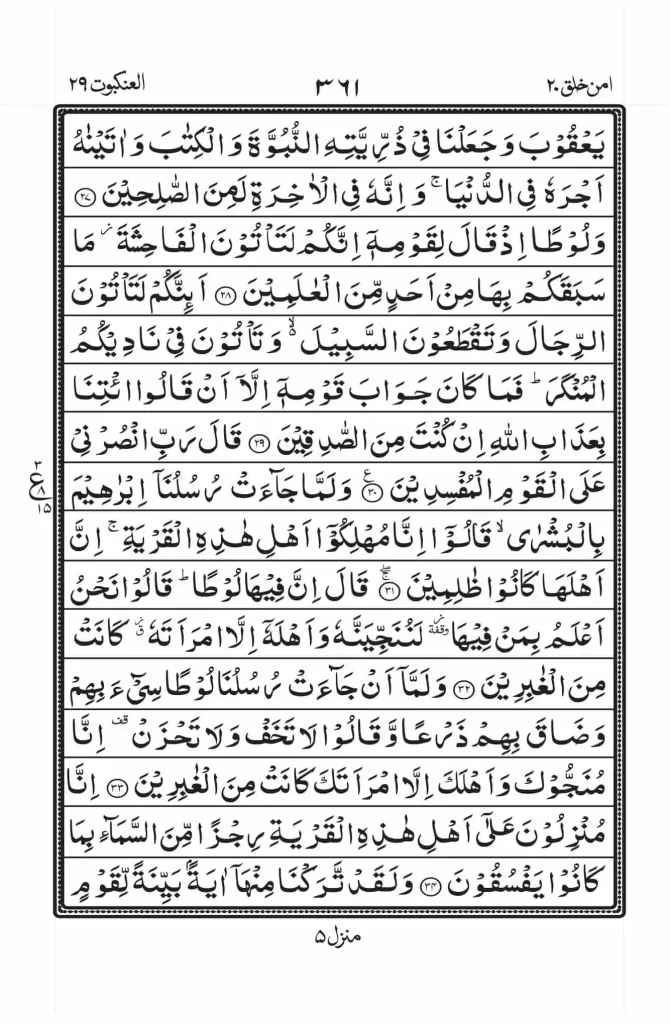 امن خلق ٢٠ ٣٦١ العنکبوت ٢٩
يَعْقُوْبَ وَجَعَلْنَا فِيْ ذُرِّيَّتِهِ النُّبُوَّةَ وَالْكِتٰبَ وَاٰتَيْنٰهُ
اَجْرَهٗ فِي الدُّنْيَا ۚ وَاِنَّهٗ فِي الْاٰخِرَةِ لَمِنَ الصّٰلِحِيْنَ ﴿٢٧﴾
وَلُوْطًا اِذْ قَالَ لِقَوْمِهٖٓ اِنَّكُمْ لَتَاْتُوْنَ الْفَاحِشَةَ ز مَا
سَبَقَكُمْ بِهَا مِنْ اَحَدٍ مِّنَ الْعٰلَمِيْنَ ﴿٢٨﴾ اَئِنَّكُمْ لَتَاْتُوْنَ
الرِّجَالَ وَتَقْطَعُوْنَ السَّبِيْلَ ۙ وَتَاْتُوْنَ فِيْ نَادِيْكُمُ
الْمُنْكَرَ ؕ فَمَا كَانَ جَوَابَ قَوْمِهٖٓ اِلَّآ اَنْ قَالُوا ائْتِنَا
بِعَذَابِ اللّٰهِ اِنْ كُنْتَ مِنَ الصّٰدِقِيْنَ ﴿٢٩﴾ قَالَ رَبِّ انْصُرْنِيْ
عَلَى الْقَوْمِ الْمُفْسِدِيْنَ ﴿٣٠﴾ ع وَلَمَّا جَآءَتْ رُسُلُنَآ اِبْرٰهِيْمَ
٣ ع ٨ ١٥
بِالْبُشْرٰى ۙ قَالُوْٓا اِنَّا مُهْلِكُوْٓا اَهْلِ هٰذِهِ الْقَرْيَةِ ۚ اِنَّ
اَهْلَهَا كَانُوْا ظٰلِمِيْنَ ﴿٣١﴾ ۚۖ قَالَ اِنَّ فِيْهَا لُوْطًا ؕ قَالُوْا نَحْنُ
اَعْلَمُ بِمَنْ فِيْهَا ز وقفة لَنُنَجِّيَنَّهٗ وَاَهْلَهٗٓ اِلَّا امْرَاَتَهٗ ق ز كَانَتْ
مِنَ الْغٰبِرِيْنَ ﴿٣٢﴾ وَلَمَّآ اَنْ جَآءَتْ رُسُلُنَا لُوْطًا سِيْٓءَ بِهِمْ
وَضَاقَ بِهِمْ ذَرْعًا وَّقَالُوْا لَا تَخَفْ وَلَا تَحْزَنْ قف اِنَّا
مُنَجُّوْكَ وَاَهْلَكَ اِلَّا امْرَاَتَكَ كَانَتْ مِنَ الْغٰبِرِيْنَ ﴿٣٣﴾ اِنَّا
مُنْزِلُوْنَ عَلٰٓى اَهْلِ هٰذِهِ الْقَرْيَةِ رِجْزًا مِّنَ السَّمَآءِ بِمَا
كَانُوْا يَفْسُقُوْنَ ﴿٣٤﴾ وَلَقَدْ تَّرَكْنَا مِنْهَآ اٰيَةًۢ بَيِّنَةً لِّقَوْمٍ
منزل ٥